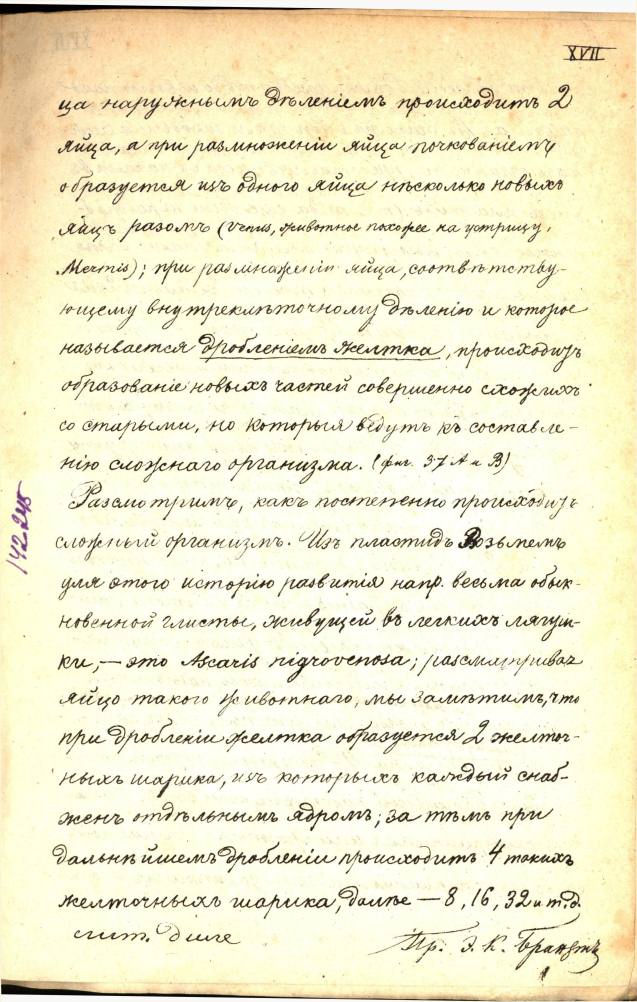 XVII
ца наружнымъ дѣленіемъ происходитъ 2
яйца, а при размноженіи яйца почкованіемъ
образуется изъ одного яйца нѣсколько новыхъ
яйцъ разомъ (Venus, животное похожее на устрицу,
Mermis); при размноженіи яйца, соотвѣтству-
ющему внутреклѣточному дѣленію и которое
называется дробленіемъ желтка, происходитъ
образованіе новыхъ частей совершенно схожихъ
со старыми, но которыя ведутъ къ составле-
нію сложнаго организма. (фиг. 37 А и В)
Разсмотримъ, какъ постепенно происходитъ
сложный организмъ. Изъ пластидъ Возьмемъ
для этого исторію развитія напр. весьма обык-
новенной глисты, живущей въ легкихъ лягуш-
ки, — это Ascaris nigrovenosa; разсматривая
яйцо такого животнаго, мы замѣтимъ, что
при дробленіи желтка образуется 2 желточ-
ныхъ шарика, изъ которыхъ каждый снаб-
женъ отдѣльнымъ ядромъ; за тѣмъ при
дальнѣйшемъ дробленіи происходитъ 4 такихъ
желточныхъ шарика, далѣе — 8, 16, 32 и т.д.
лит.
Пр. Э. К. Брандтъ
142245